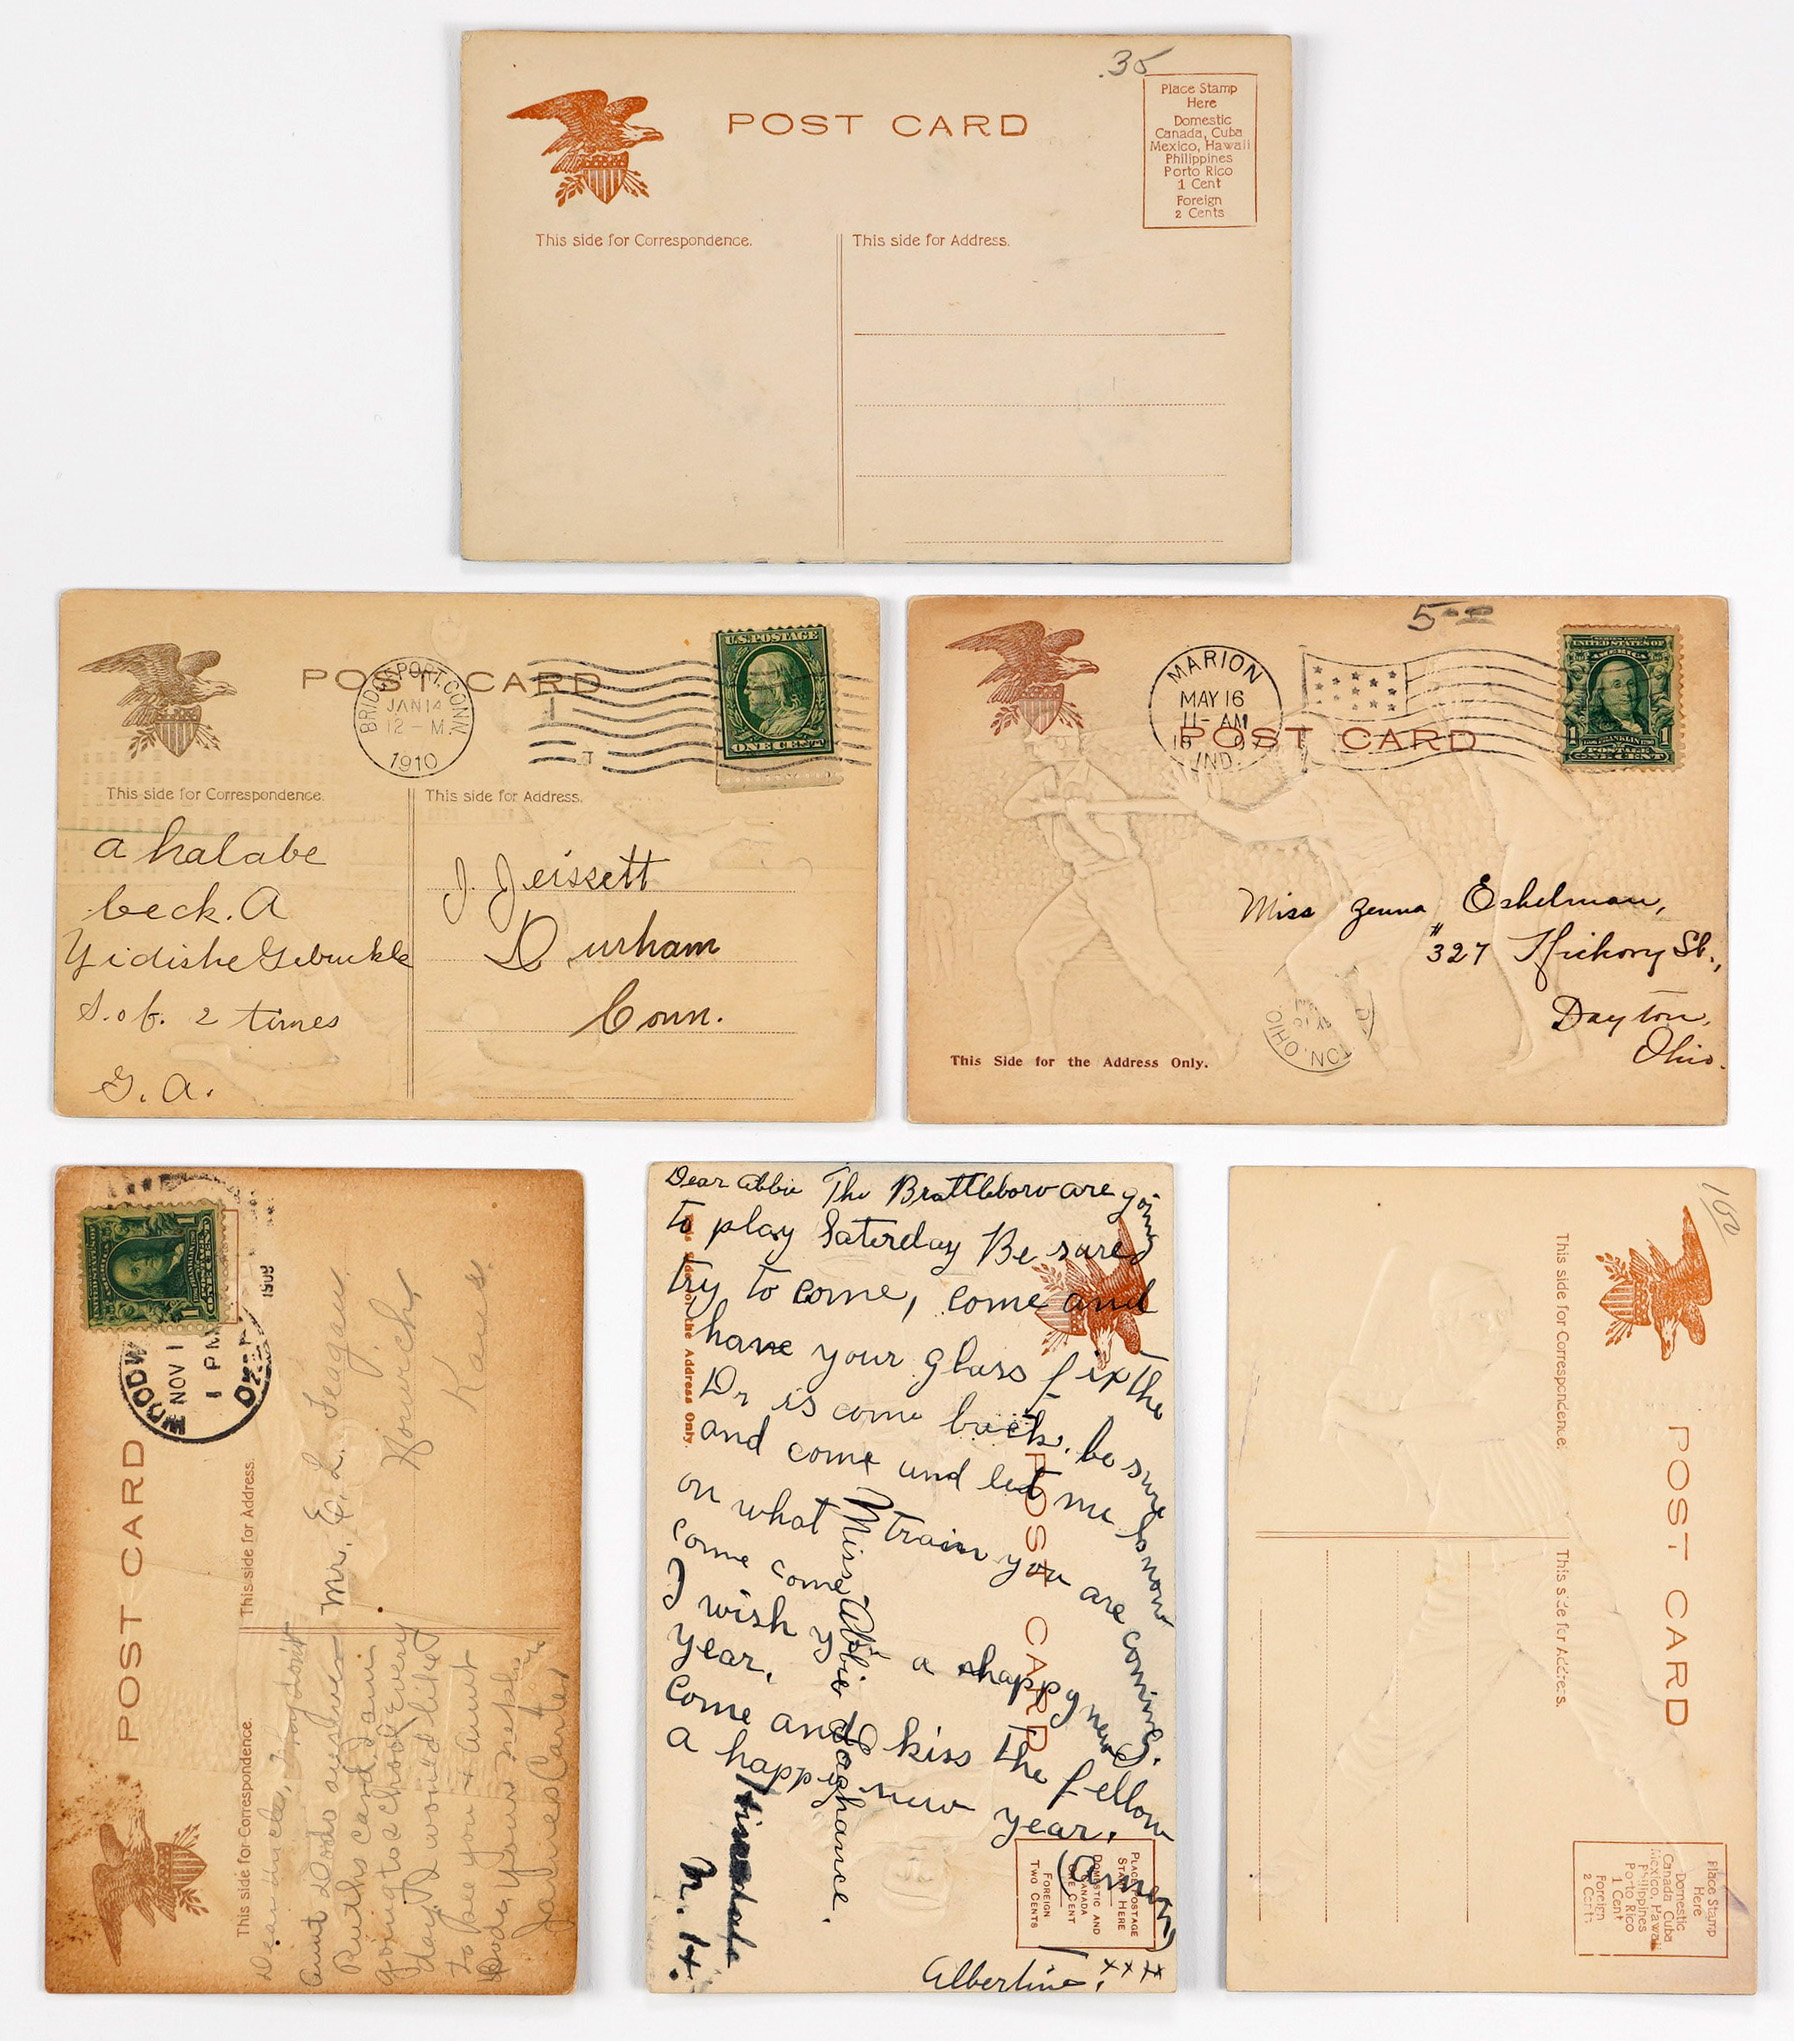 .35
POST CARD
Place Stamp
Here
Domestic
Canada, Cuba
Mexico, Hawaii
Philippines
Porto Rico
1 Cent
Foreign
2 Cents
This side for Correspondence.
This side for Address.
POST CARD
BRIDGEPORT, CONN.
JAN 14
12 - M
1910
U.S. POSTAGE
ONE CENT
This side for Correspondence.
This side for Address.
a halabe
beck. A
Yidishe Gebuckle
S. of. 2 times
G. A.
J. Jeissett
Durham
Conn.
5
MARION
MAY 16
11 - AM
IND.
POST CARD
UNITED STATES OF
AMERICA
POSTAGE
ONE CENT
Miss Zenna Eshelman,
#327 Hickory St.,
Dayton,
Ohio.
This Side for the Address Only.
OHIO
NOV 1
1 PM
1909
POST CARD
This side for Address.
Mr. E. L. Teagau
Howich,
Kans.
This side for Correspondence.
Dear uncle, Why dont
Aunt Dode answer
Ruths card. I am
going to school every
day. I would like
to see you & Aunt
Dode. Your nephew
James Carter
Dear Abbie The Brattleboro are going
to play Saterday Be sure
try to come, come and
have your glass fix the
Dr is come back. be sure
and come and let me know
on what train you are coming.
come come
I wish you a happy new
year.
come and kiss the fellow
a happy new year.
(amen)
Albertine. xxx
Miss Abbie
Hinsdale
N. H.
This side for the Address Only.
POST CARD
PLACE POSTAGE
STAMP HERE
DOMESTIC AND
CANADA
ONE CENT
FOREIGN
TWO CENTS
100
POST CARD
This side for Correspondence.
This side for Address.
Place Stamp
Here
Domestic
Canada, Cuba
Mexico, Hawaii
Philippines
Porto Rico
1 Cent
Foreign
2 Cents